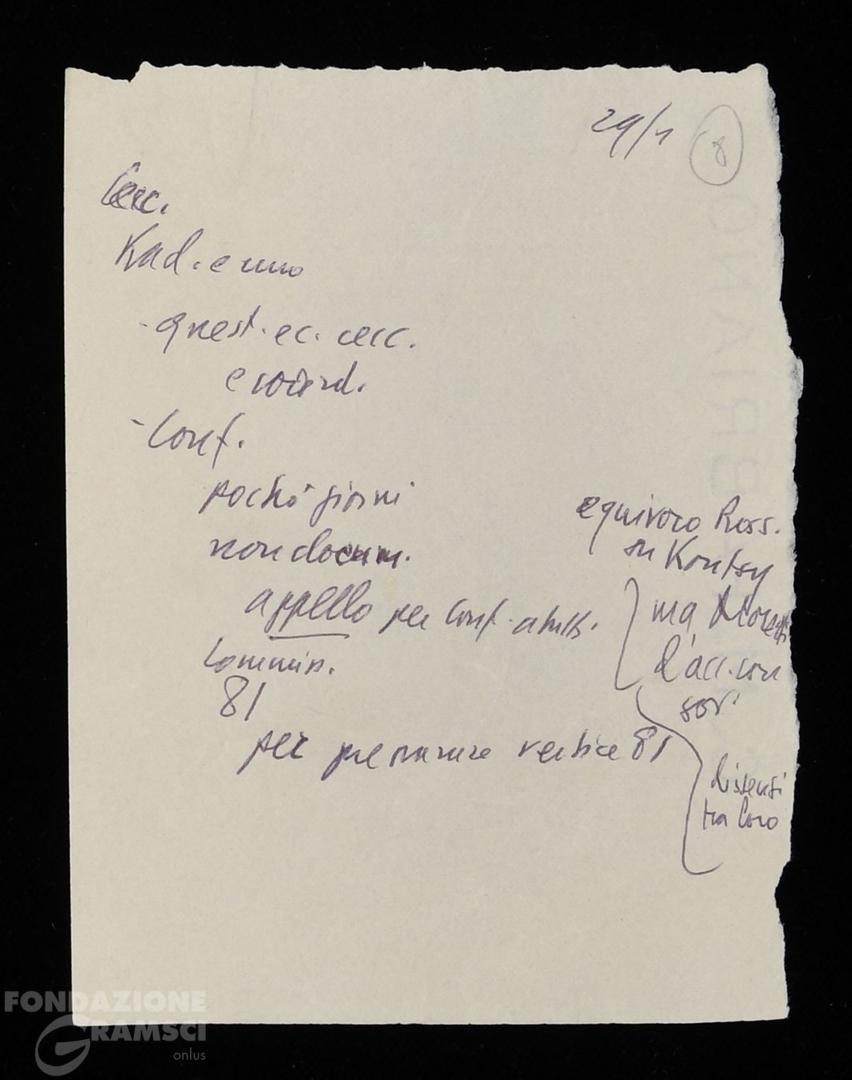 29/1 8
Cecc.
Kad. e uno
- quest. ec. cecc.
- Conf.
pochi giorni
non docum.
appello per Conf.
Commiss.
81
per preparare vertice 81
equivoco Ross.
su
ma
d'acc. con
sov.
dissensi
tra loro
FONDAZIONE
GRAMSCI
onlus